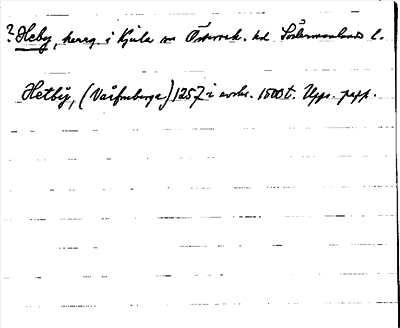 ? Heby, herrg. i Kjula sn Österrek. hd Södermanlands l.
Hetbÿ, (Vårfruberga) 1257 i avskr. 1500 t. Upps. papp.